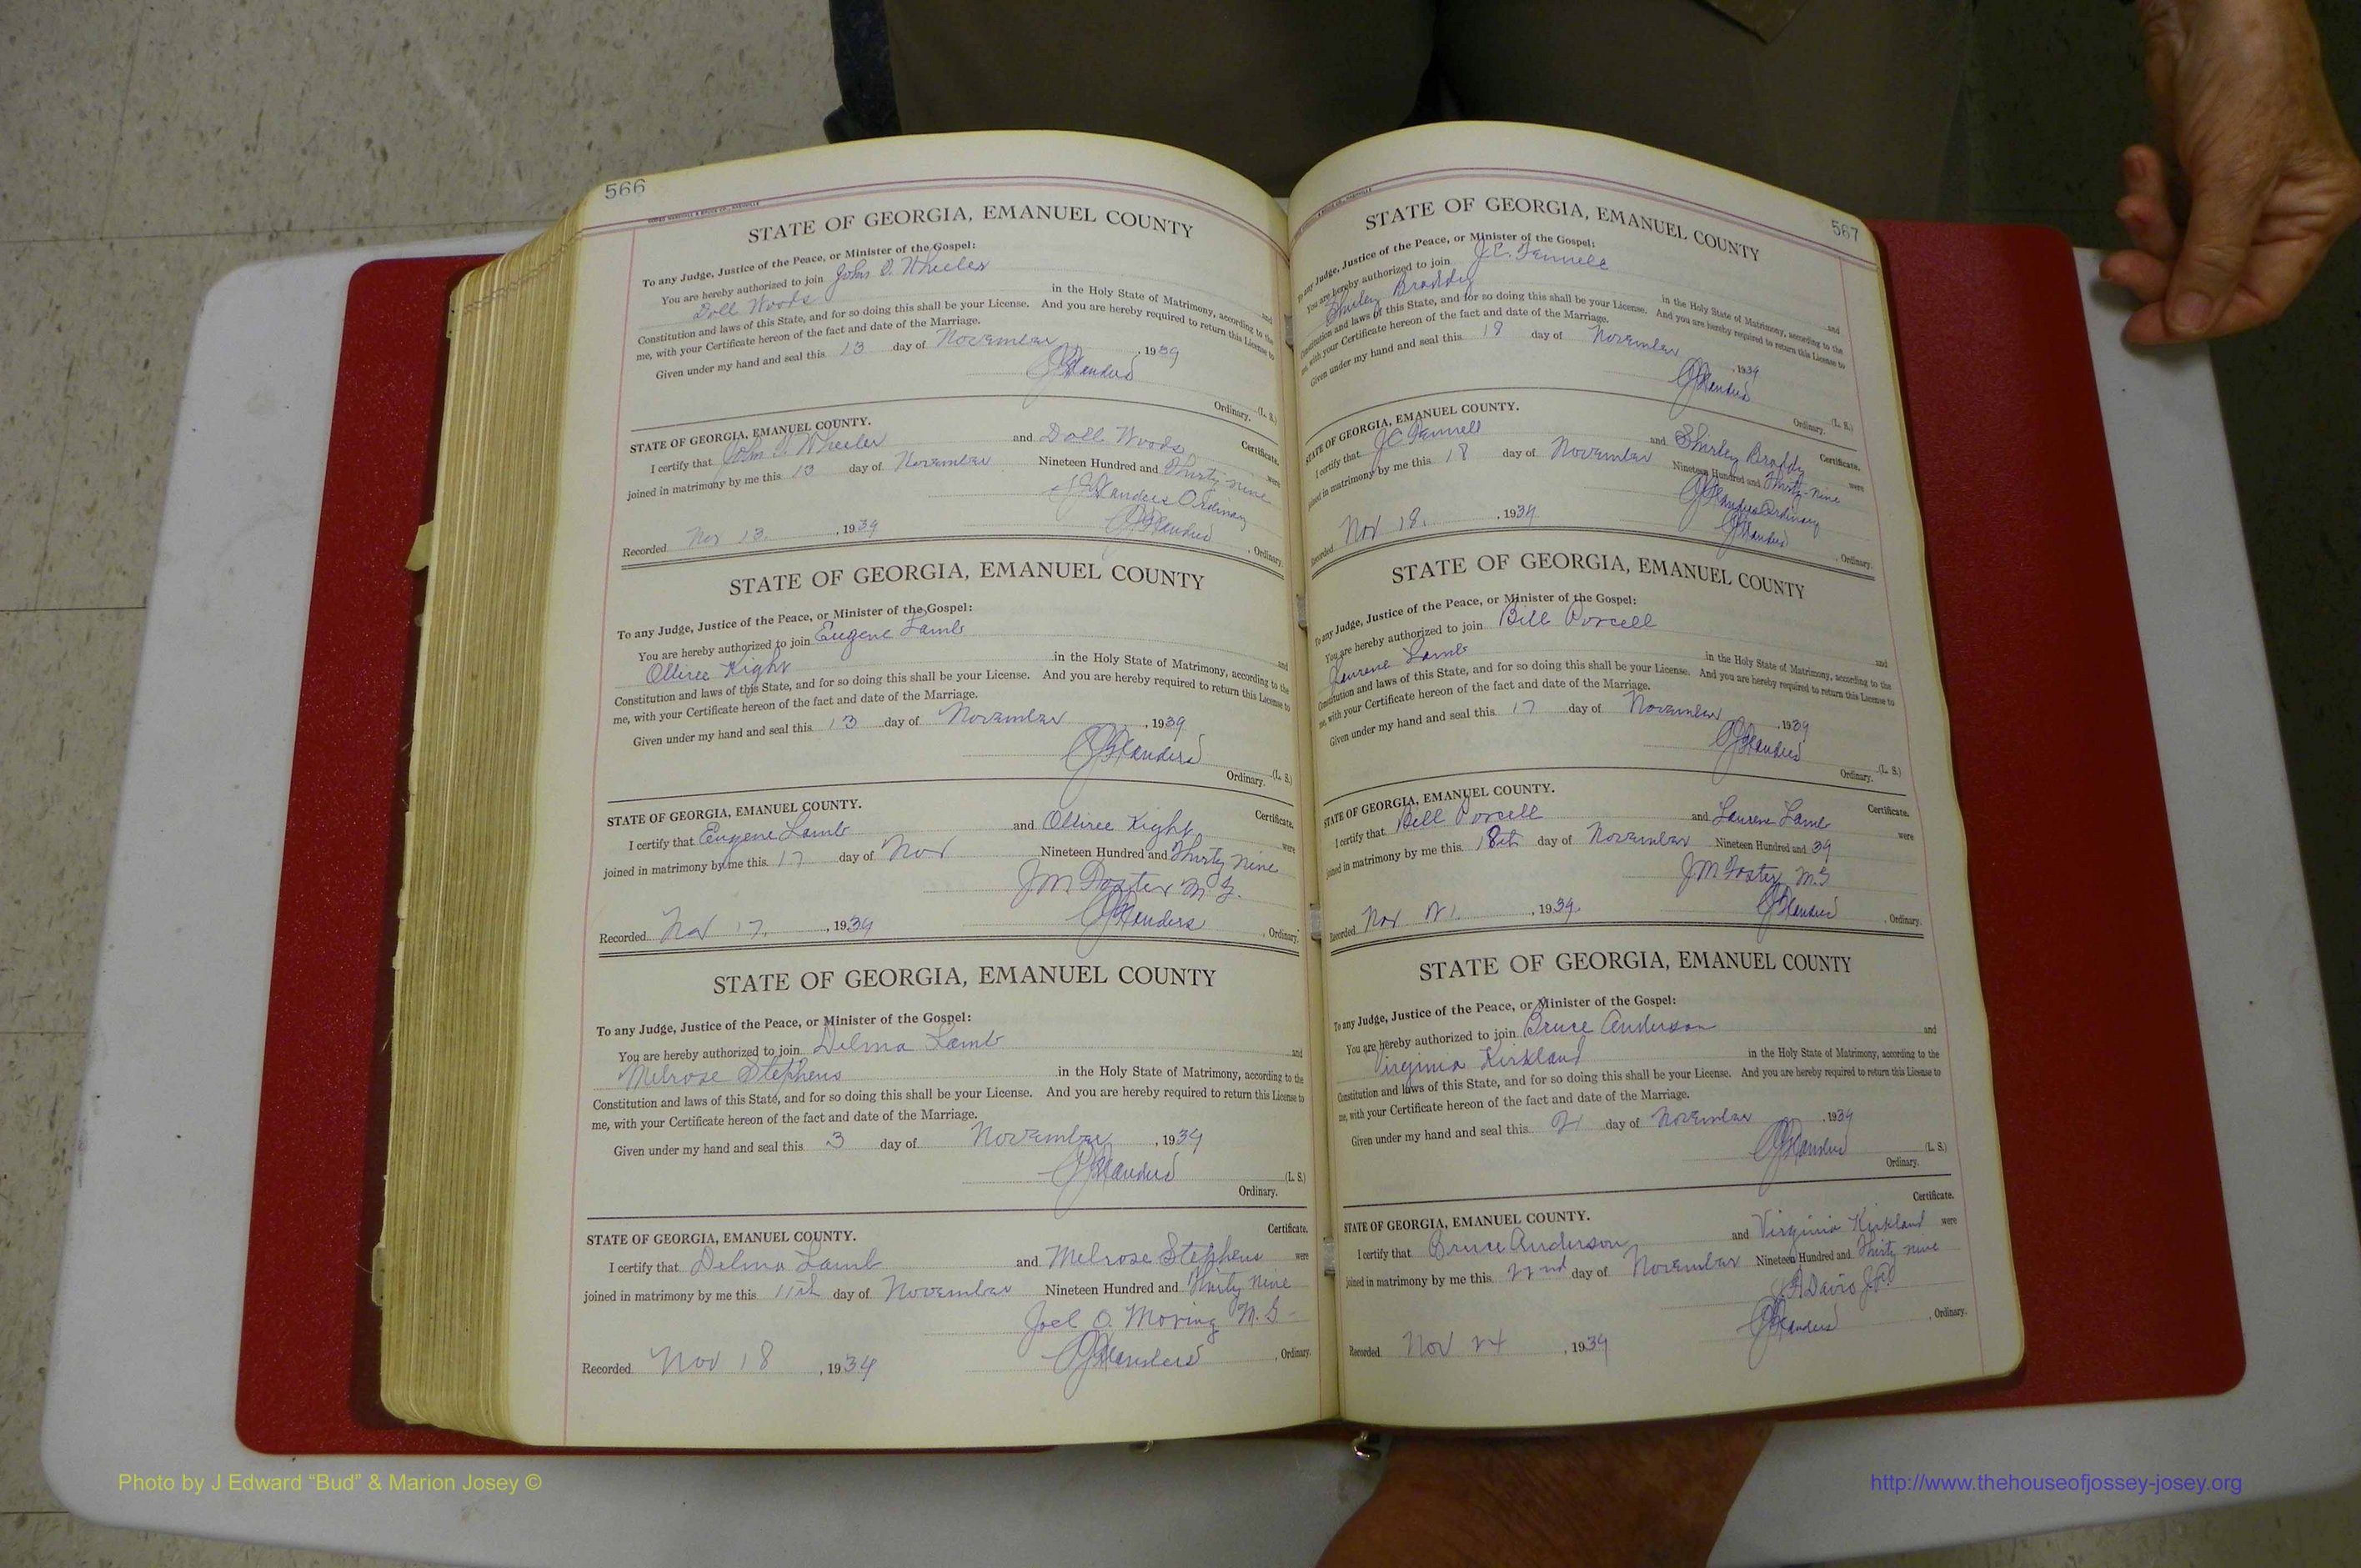 566
STATE OF GEORGIA, EMANUEL COUNTY
To any Judge, Justice of the Peace, or Minister of the Gospel:
You are hereby authorized to join John D. Wheeler and
Doll Woods in the Holy State of Matrimony, according to the
Constitution and laws of this State, and for so doing this shall be your License. And you are hereby required to return this License to
me, with your Certificate hereon of the fact and date of the Marriage.
Given under my hand and seal this 13 day of November, 1939
(L. S.)
Ordinary.
STATE OF GEORGIA, EMANUEL COUNTY. Certificate.
I certify that John D. Wheeler and Doll Woods were
joined in matrimony by me this 13 day of November Nineteen Hundred and Thirty nine
Flanders Ordinary
Recorded Nov 13. , 1939 Flanders, Ordinary.
STATE OF GEORGIA, EMANUEL COUNTY
To any Judge, Justice of the Peace, or Minister of the Gospel:
You are hereby authorized to join Eugene Lamb and
Olliree Kight in the Holy State of Matrimony, according to the
Constitution and laws of this State, and for so doing this shall be your License. And you are hereby required to return this License to
me, with your Certificate hereon of the fact and date of the Marriage.
Given under my hand and seal this 13 day of November, 1939
Flanders (L. S.)
Ordinary.
STATE OF GEORGIA, EMANUEL COUNTY. Certificate.
I certify that Eugene Lamb and Olliree Kight were
joined in matrimony by me this 17 day of Nov Nineteen Hundred and Thirty nine
JM Foster M.G.
Recorded Nov 17. , 1939 Flanders, Ordinary.
STATE OF GEORGIA, EMANUEL COUNTY
To any Judge, Justice of the Peace, or Minister of the Gospel:
You are hereby authorized to join Delma Lamb and
Melrose Stephens in the Holy State of Matrimony, according to the
Constitution and laws of this State, and for so doing this shall be your License. And you are hereby required to return this License to
me, with your Certificate hereon of the fact and date of the Marriage.
Given under my hand and seal this 3 day of November, 1939
Flanders (L. S.)
Ordinary.
STATE OF GEORGIA, EMANUEL COUNTY. Certificate.
I certify that Delma Lamb and Melrose Stephens were
joined in matrimony by me this 11th day of November Nineteen Hundred and Thirty nine
Joel O. Moring M.G.
Recorded Nov 18 , 1939 Flanders, Ordinary.
567
STATE OF GEORGIA, EMANUEL COUNTY
To any Judge, Justice of the Peace, or Minister of the Gospel:
You are hereby authorized to join J.C. Fennell and
Shirley Braddy in the Holy State of Matrimony, according to the
Constitution and laws of this State, and for so doing this shall be your License. And you are hereby required to return this License to
me, with your Certificate hereon of the fact and date of the Marriage.
Given under my hand and seal this 18 day of November, 1939
Flanders (L. S.)
Ordinary.
STATE OF GEORGIA, EMANUEL COUNTY. Certificate.
I certify that J.C. Fennell and Shirley Braddy were
joined in matrimony by me this 18 day of November Nineteen Hundred and Thirty-nine
Flanders Ordinary
Recorded Nov 18. , 1939 Flanders, Ordinary.
STATE OF GEORGIA, EMANUEL COUNTY
To any Judge, Justice of the Peace, or Minister of the Gospel:
You are hereby authorized to join Bill Porcell and
Laurene Lamb in the Holy State of Matrimony, according to the
Constitution and laws of this State, and for so doing this shall be your License. And you are hereby required to return this License to
me, with your Certificate hereon of the fact and date of the Marriage.
Given under my hand and seal this 17 day of November, 1939
Flanders (L. S.)
Ordinary.
STATE OF GEORGIA, EMANUEL COUNTY. Certificate.
I certify that Bill Porcell and Laurene Lamb were
joined in matrimony by me this 18th day of November Nineteen Hundred and 39
JM Foster M.G
Recorded Nov 21. , 1939. Flanders, Ordinary.
STATE OF GEORGIA, EMANUEL COUNTY
To any Judge, Justice of the Peace, or Minister of the Gospel:
You are hereby authorized to join Bruce Anderson and
Virginia Kirkland in the Holy State of Matrimony, according to the
Constitution and laws of this State, and for so doing this shall be your License. And you are hereby required to return this License to
me, with your Certificate hereon of the fact and date of the Marriage.
Given under my hand and seal this 21 day of November, 1939
Flanders (L. S.)
Ordinary.
STATE OF GEORGIA, EMANUEL COUNTY. Certificate.
I certify that Bruce Anderson and Virginia Kirkland were
joined in matrimony by me this 22nd day of November Nineteen Hundred and Thirty nine
Davis J.P.
Recorded Nov 24 , 1939 Flanders, Ordinary.
Photo by J Edward “Bud” & Marion Josey ©
http://www.thehouseofjossey-josey.org